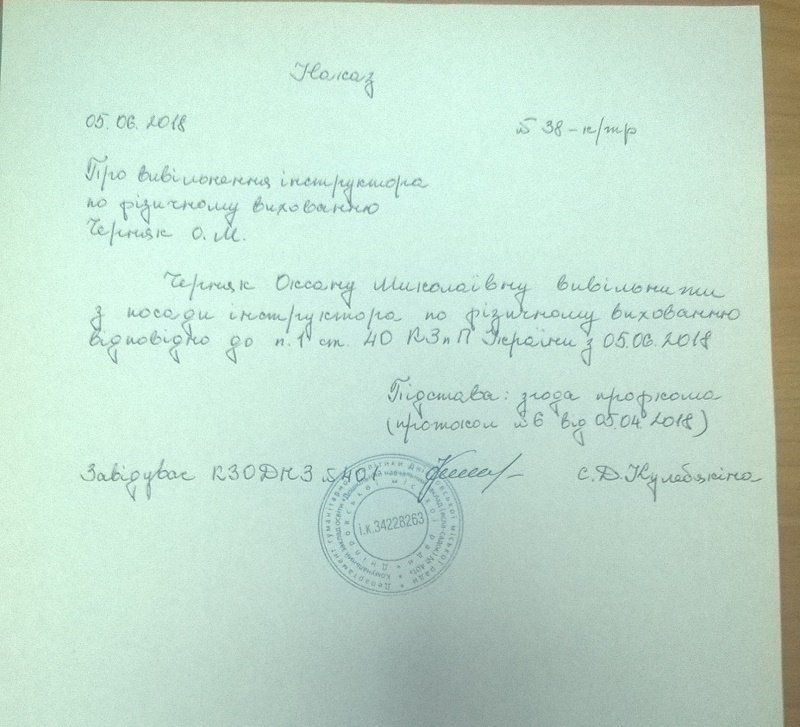 Наказ
05.06.2018 № 38-к/тр
Про вивільнення інструктора
по фізичному вихованню
Черняк О.М.
Черняк Оксану Миколаївну вивільнити
з посади інструктора по фізичному вихованню
відповідно до п.1 ст. 40 КЗпП України з 05.06.2018
Підстава: згода профкома
(протокол №6 від 05.04.2018)
Завідувач КЗОДНЗ №401 С.Д.Кулебякіна
Департамент гуманітарної політики Дніпровської міської ради
і.к.34228263